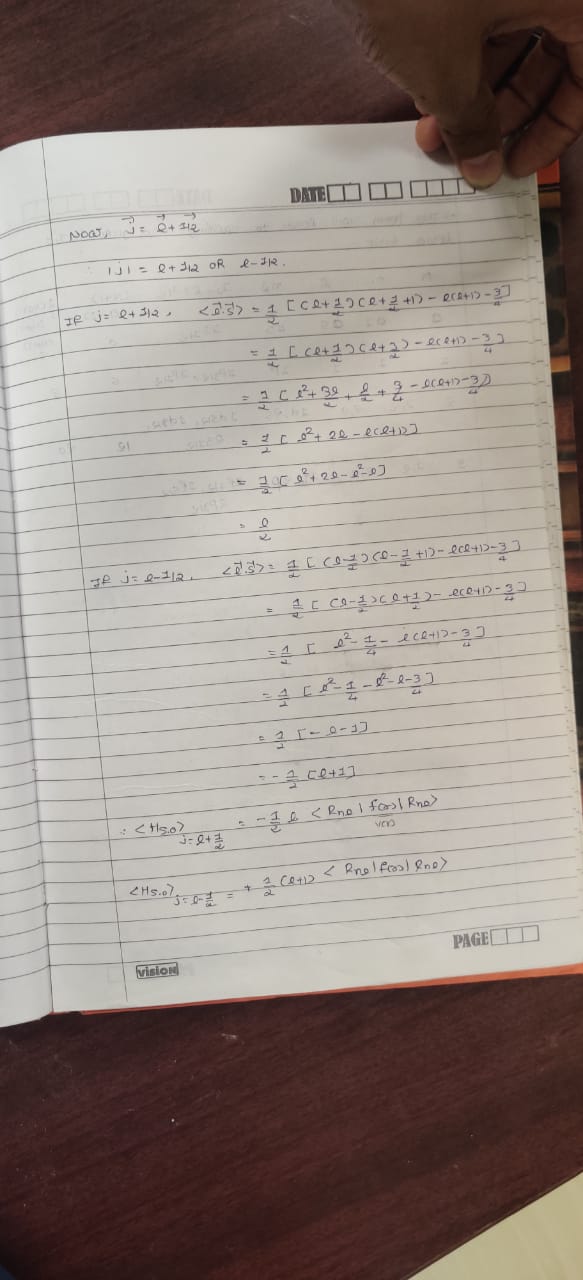 DATE
Now, j⃗ = l⃗ + 1/2
∴ |j| = l + 1/2 OR l - 1/2.
If j = l + 1/2, <l⃗.s⃗> = 1/2 [(l+1/2)(l+1/2+1) - l(l+1) - 3/4]
= 1/2 [(l+1/2)(l+3/2) - l(l+1) - 3/4]
= 1/2 [l² + 3l/2 + l/2 + 3/4 - l(l+1) - 3/4]
= 1/2 [l² + 2l - l(l+1)]
= 1/2 [l² + 2l - l² - l]
= l/2
If j = l - 1/2, <l⃗.s⃗> = 1/2 [(l-1/2)(l-1/2+1) - l(l+1) - 3/4]
= 1/2 [(l-1/2)(l+1/2) - l(l+1) - 3/4]
= 1/2 [l² - 1/4 - l(l+1) - 3/4]
= 1/2 [l² - 1/4 - l² - l - 3/4]
= 1/2 [-l-1]
= - 1/2 [l+1]
∴ <Hs.o> j=l+1/2 = - 1/2 l <Rnl | f(r) | Rnl>
V(r)
<Hs.o> j=l-1/2 = + 1/2 (l+1) <Rnl | f(r) | Rnl>
PAGE
vision